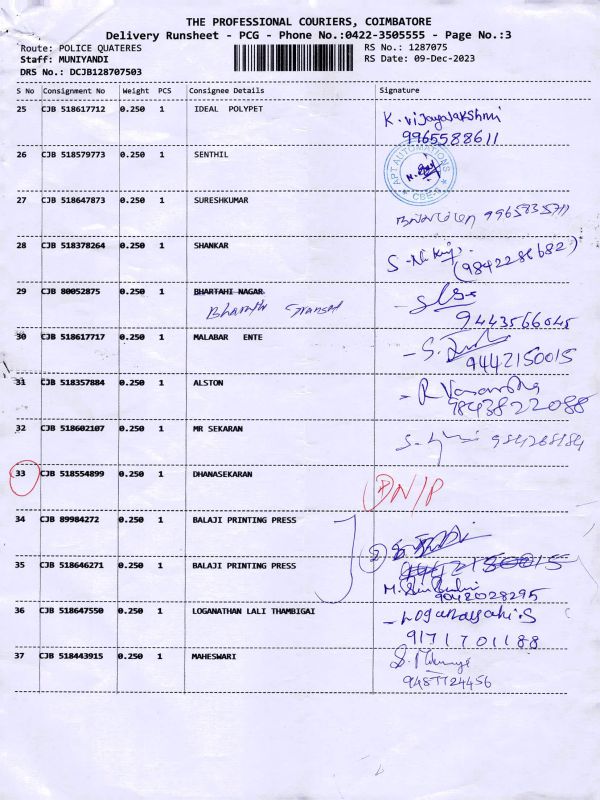 THE PROFESSIONAL COURIERS, COIMBATORE
Delivery Runsheet - PCG - Phone No.:0422-3505555 - Page No.:3
Route: POLICE QUATERES RS No.: 1287075
Staff: MUNIYANDI RS Date: 09-Dec-2023
DRS No.: DCJB128707503
S No Consignment No Weight PCS Consignee Details Signature
25 CJB 518617712 0.250 1 IDEAL POLYPET K. Vijayalakshmi
9965588611
26 CJB 518579773 0.250 1 SENTHIL APT AUTOMATIONS CBE-
27 CJB 518647873 0.250 1 SURESHKUMAR 9965835711
28 CJB 518378264 0.250 1 SHANKAR
(9842286682)
29 CJB 80052875 0.250 1 BHARTAHI NAGAR
9443566045
30 CJB 518617717 0.250 1 MALABAR ENTE
9442150015
31 CJB 518357884 0.250 1 ALSTON
9843822088
32 CJB 518602107 0.250 1 MR SEKARAN 984268184
33 CJB 518554899 0.250 1 DHANASEKARAN DN/P
34 CJB 89984272 0.250 1 BALAJI PRINTING PRESS 2
35 CJB 518646271 0.250 1 BALAJI PRINTING PRESS
9042028295
36 CJB 518647550 0.250 1 LOGANATHAN LALI THAMBIGAI
9171701188
37 CJB 518443915 0.250 1 MAHESWARI
9487724456